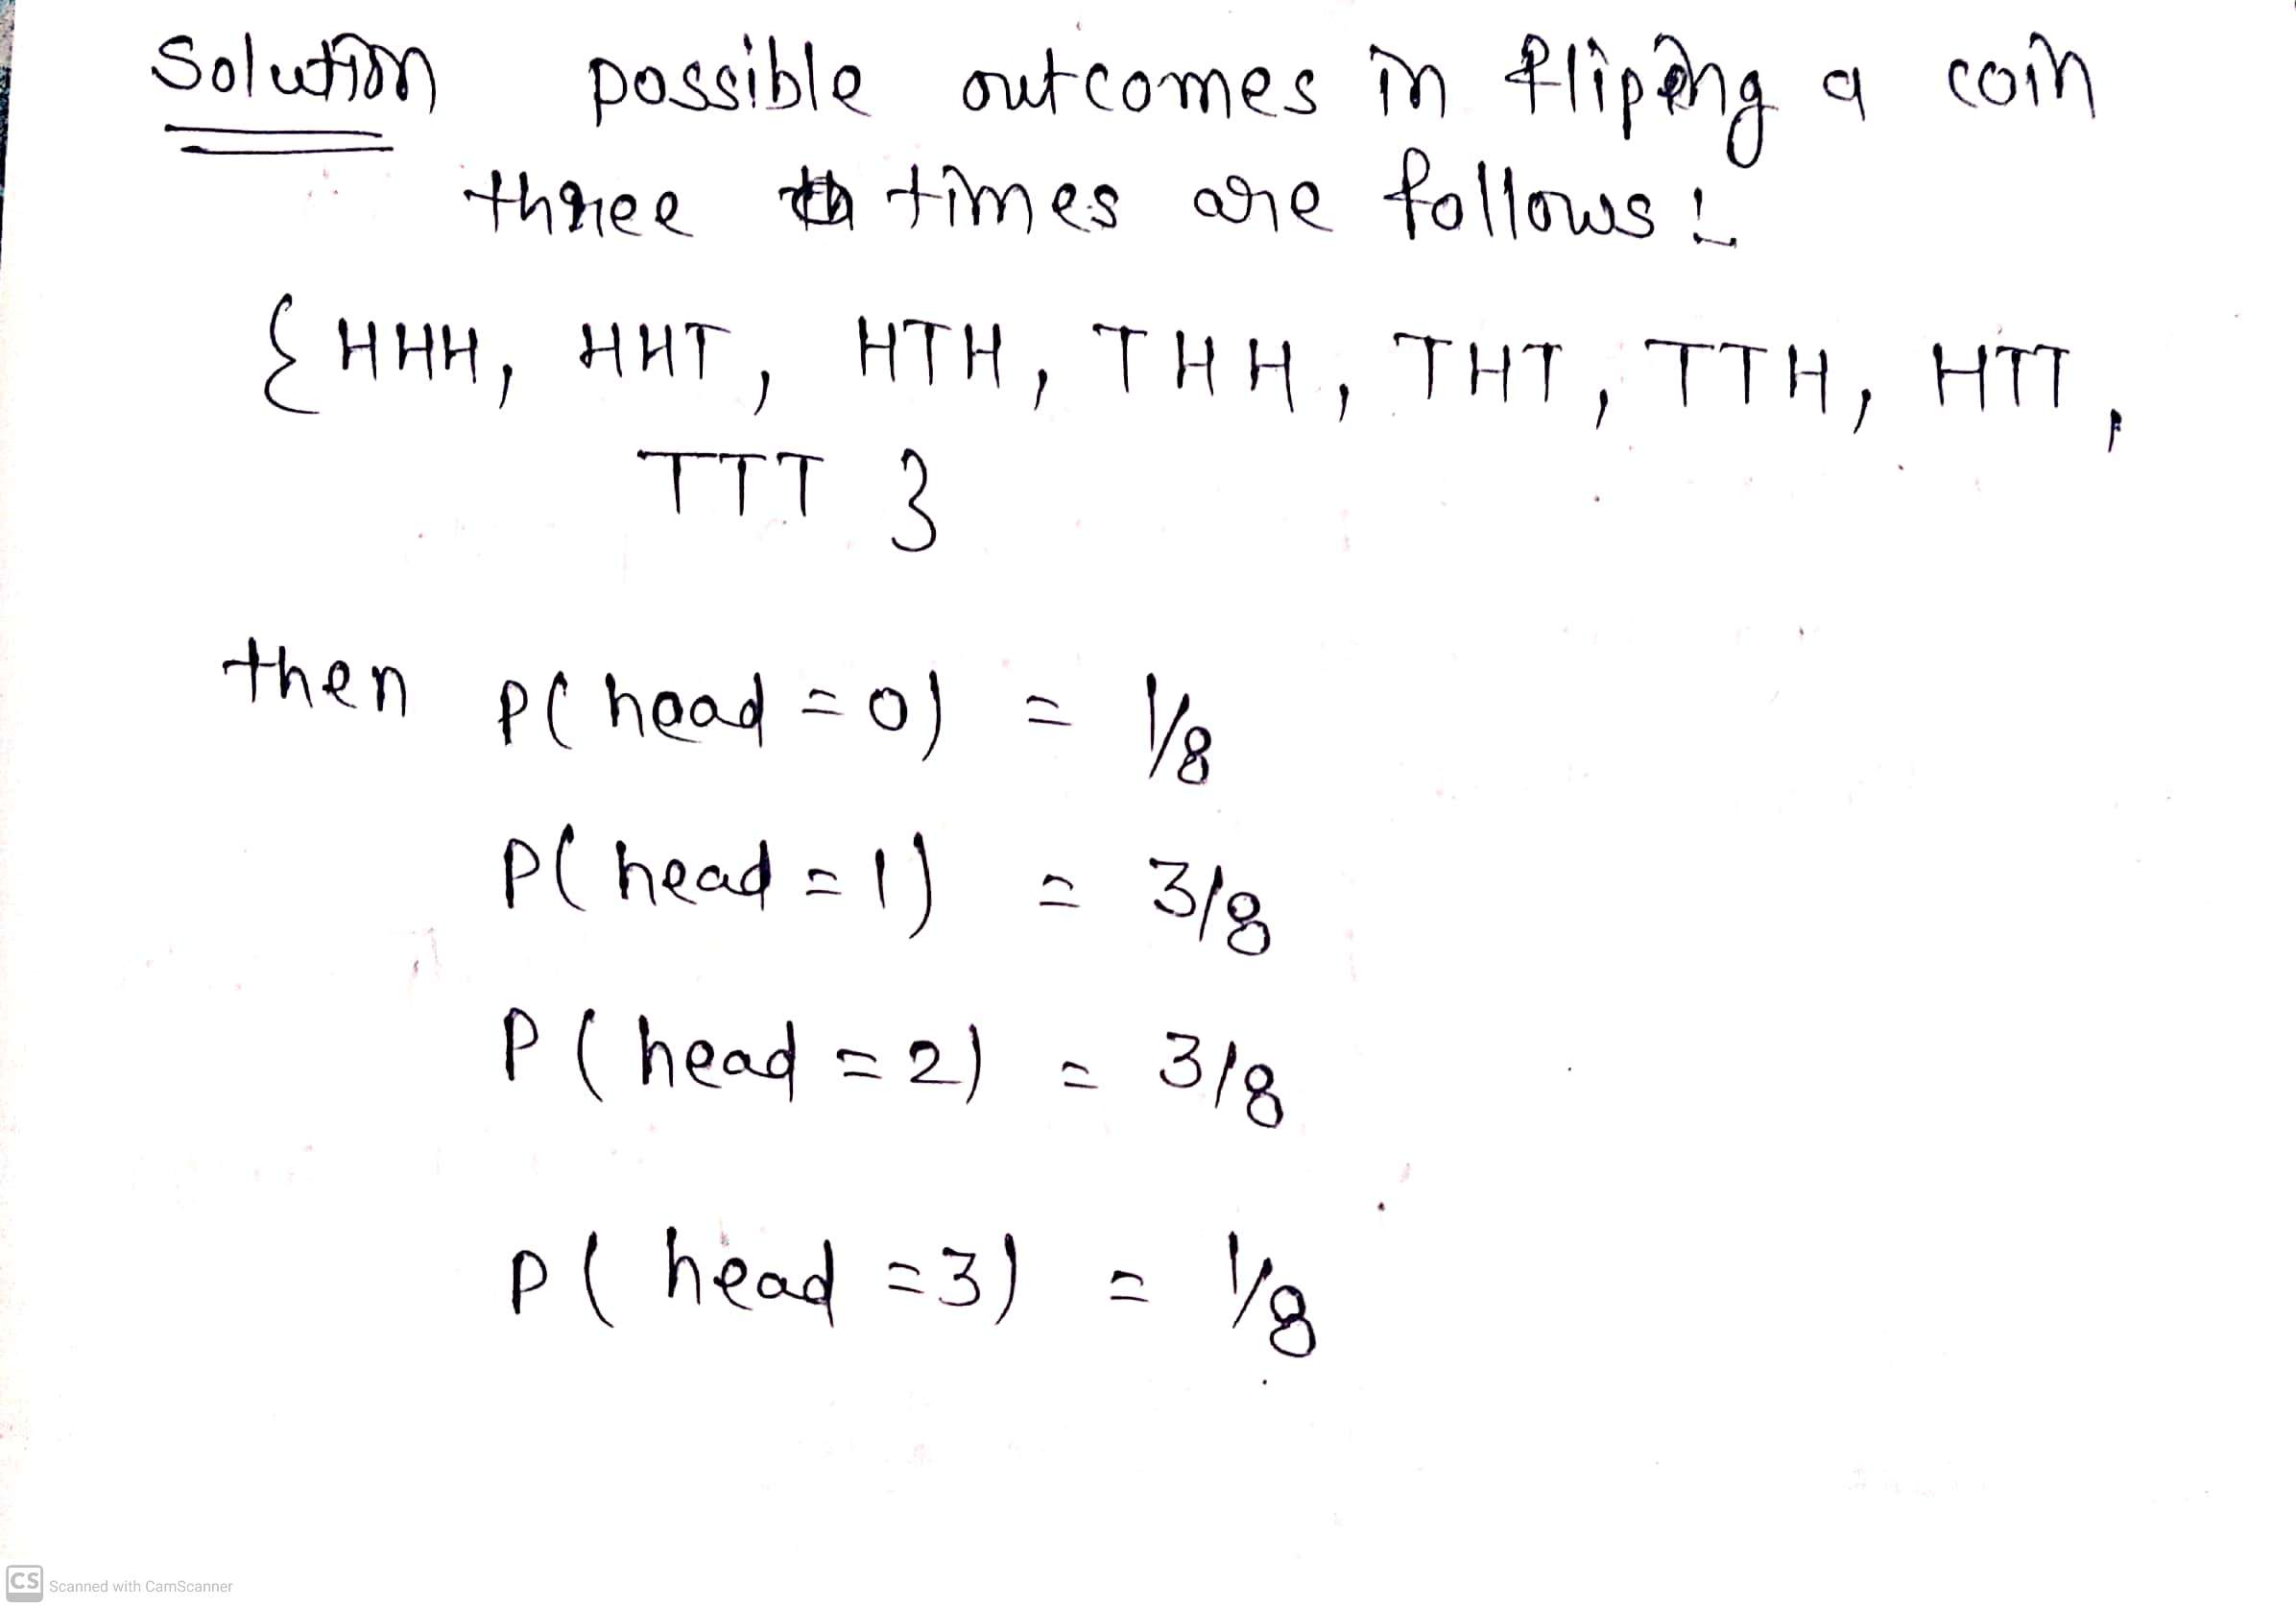 Solution possible outcomes in fliping a coin
three times are follows :-
{ HHH, HHT, HTH, THH, THT, TTH, HTT,
TTT }
then P( head = 0) = 1/8
P( head = 1) = 3/8
P( head = 2) = 3/8
P( head = 3) = 1/8
CS Scanned with CamScanner